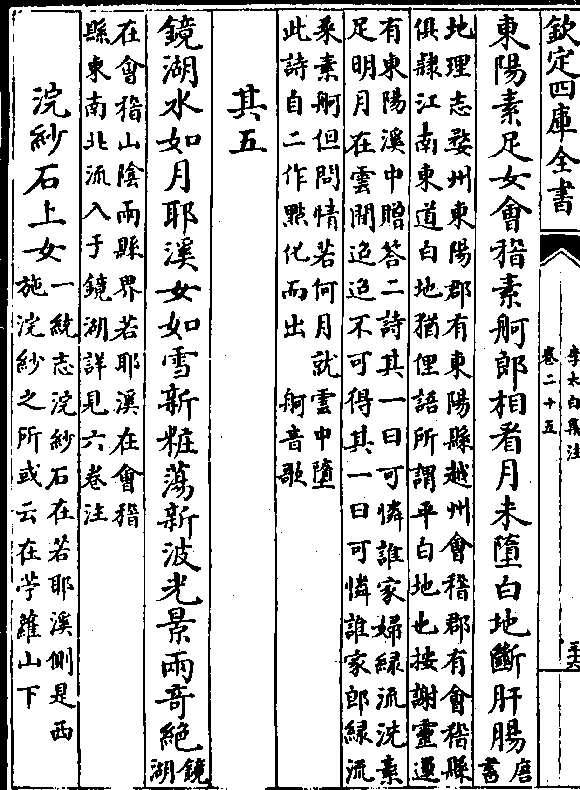 欽定四庫全書
李太白集注
卷二十五
東陽素足女會稽素舸郎相看月未墮白地斷肝腸唐書
地理志婺州東陽郡有東陽縣越州會稽郡有會稽縣
俱隸江南東道白地猶俚語所謂平白地也按謝靈運
有東陽溪中贈答二詩其一曰可憐誰家婦緑流洗素
足明月在雲間迢迢不可得其一曰可憐誰家郎緑流
乗素舸但問情若何月就雲中墮
此詩自二作㸃化而出 舸音歌
其五
鏡湖水如月耶溪女如雪新粧蕩新波光景兩奇絶鏡湖
在會稽山陰兩縣界若耶溪在會稽
縣東南北流入于鏡湖詳見六卷注
浣紗石上女一統志浣紗石在若耶溪側是西
施浣紗之所或云在苧蘿山下